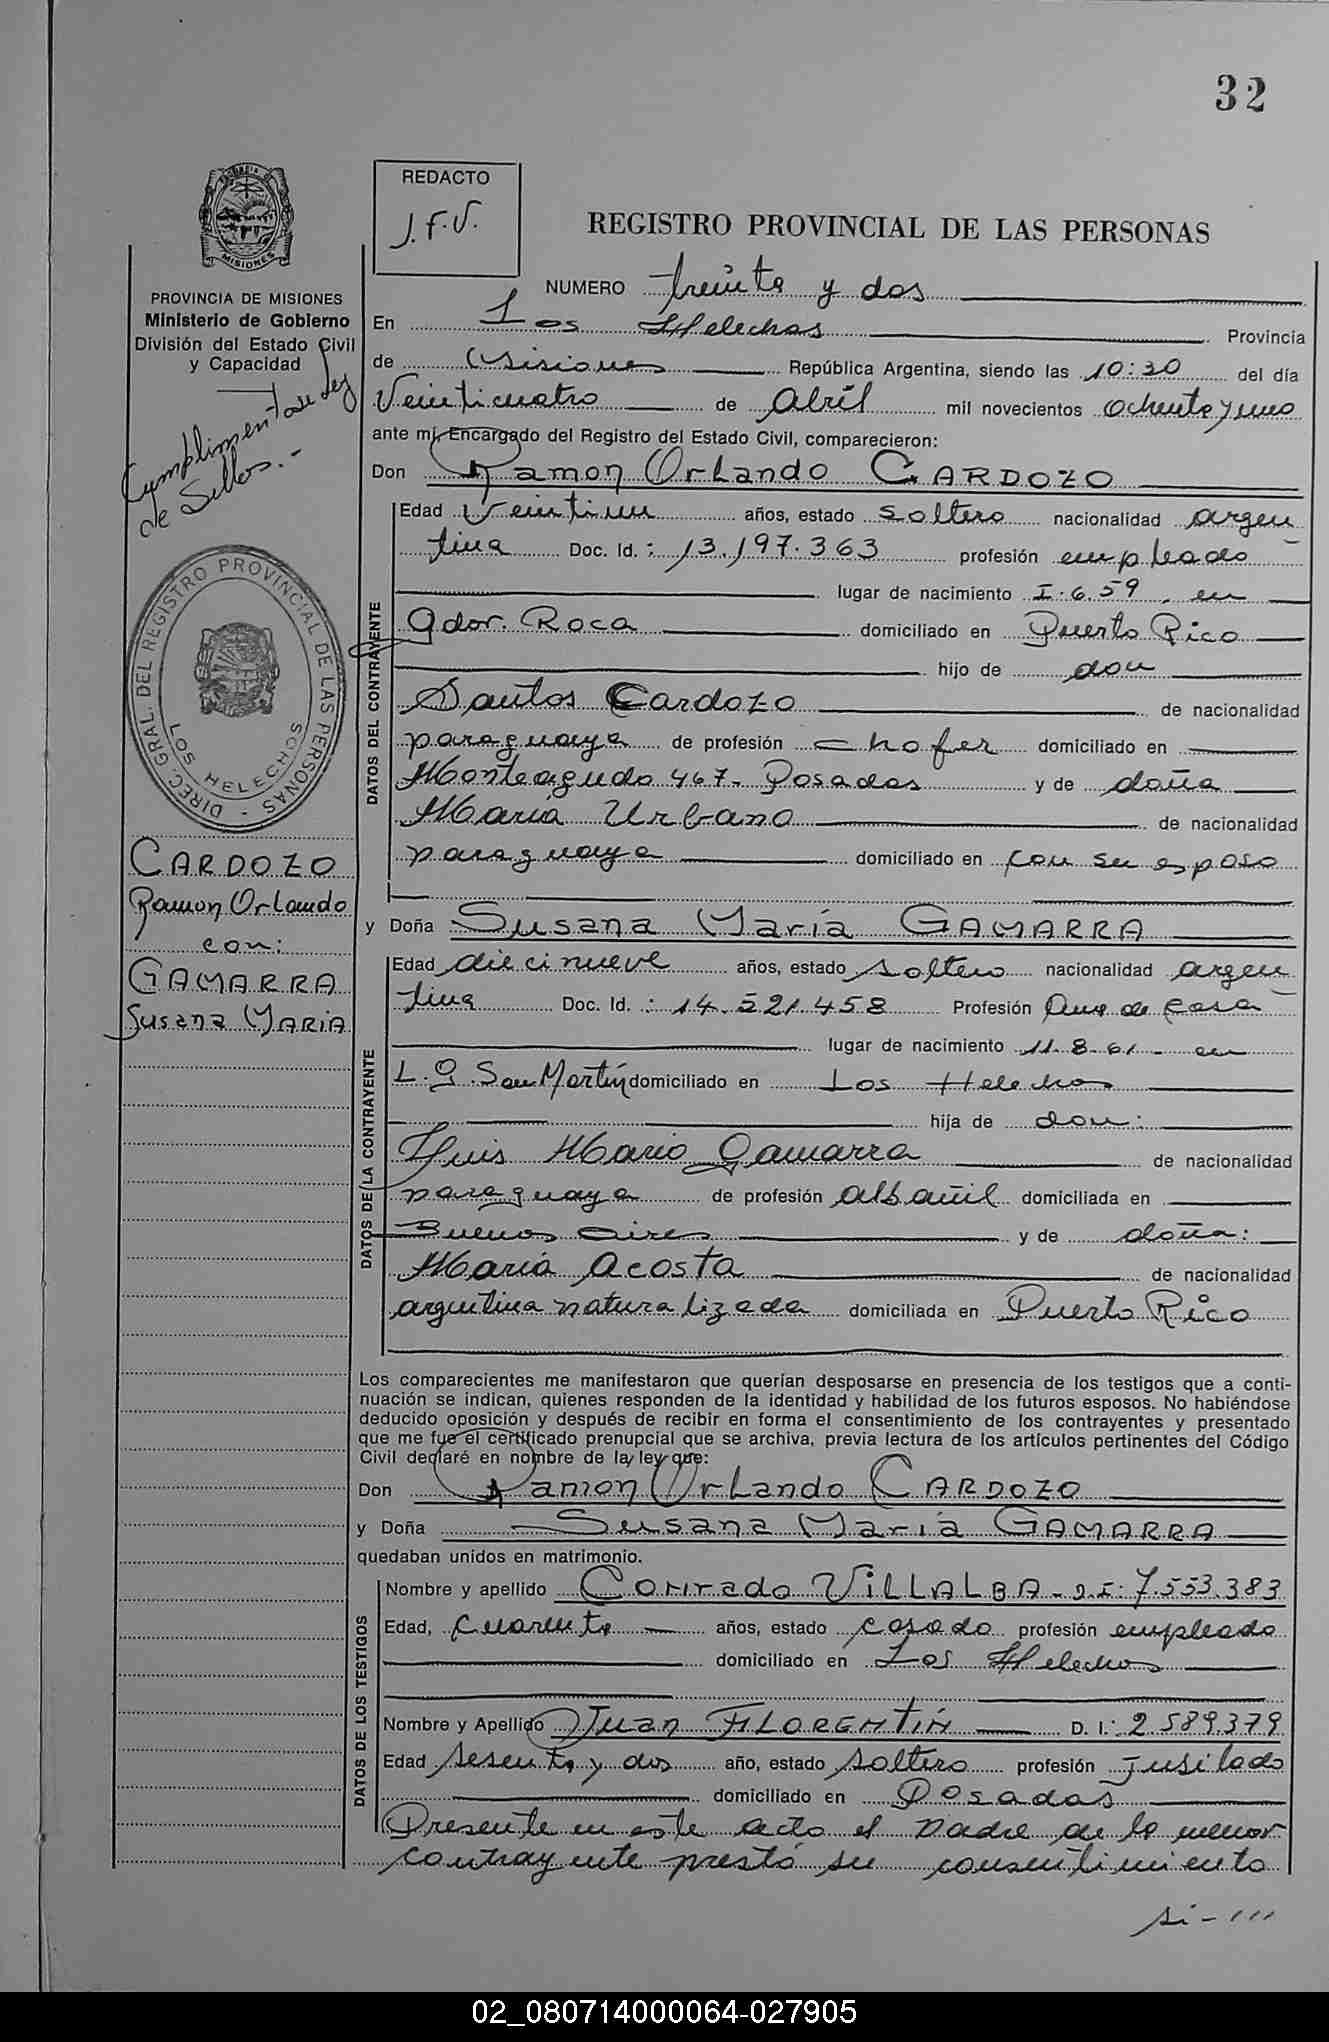 32
REDACTO
J.F.V.
REGISTRO PROVINCIAL DE LAS PERSONAS
MISIONES
PROVINCIA DE MISIONES
Ministerio de Gobierno
División del Estado Civil
y Capacidad
Cumplimentado Ley
de Sellos.-
DIREC. GRAL. DEL REGISTRO PROVINCIAL DE LAS PERSONAS
LOS HELECHOS
CARDOZO
Ramon Orlando
con:
GAMARRA
Susana MARIA
NUMERO treinta y dos
En Los Helechos Provincia
de Misiones República Argentina, siendo las 10:30 del día
Veinticuatro de Abril mil novecientos ochenta y uno
ante mí, Encargado del Registro del Estado Civil, comparecieron:
Don Ramon Orlando CARDOZO
DATOS DEL CONTRAYENTE
Edad Veintiun años, estado soltero nacionalidad argen
tina Doc. Id.: 13.197.363 profesión empleado
lugar de nacimiento I.6.59. en
Gdor. Roca domiciliado en Puerto Rico
hijo de don
Santos Cardozo de nacionalidad
paraguaya de profesión chofer domiciliado en
Monteagudo 467- Posadas y de doña
Maria Urbano de nacionalidad
paraguaya domiciliado en con su esposo
y Doña Susana María GAMARRA
DATOS DE LA CONTRAYENTE
Edad diecinueve años, estado soltera nacionalidad argen
tina Doc. Id.: 14.521.458 Profesión Ama de Casa
lugar de nacimiento 11-8-61- en
L. G. San Martín domiciliado en Los Helechos
hija de don:
Luis Mario Gamarra de nacionalidad
paraguaya de profesión albañil domiciliada en
Buenos Aires y de doña:
Maria Acosta de nacionalidad
argentina naturalizada domiciliada en Puerto Rico
Los comparecientes me manifestaron que querían desposarse en presencia de los testigos que a conti-
nuación se indican, quienes responden de la identidad y habilidad de los futuros esposos. No habiéndose
deducido oposición y después de recibir en forma el consentimiento de los contrayentes y presentado
que me fue el certificado prenupcial que se archiva, previa lectura de los artículos pertinentes del Código
Civil declaré en nombre de la ley que:
Don Ramon Orlando CARDOZO
y Doña Susana Maria GAMARRA
quedaban unidos en matrimonio.
DATOS DE LOS TESTIGOS
Nombre y apellido Conrado VILLALBA - D.I: 7.553.383
Edad, cuarenta años, estado casado profesión empleado
domiciliado en Los Helechos
Nombre y Apellido Juan FLORENTIN D. I: 2.589.379
Edad sesenta y dos año, estado soltero profesión jusilado
domiciliado en Posadas
Presente en este acto el Padre de la menor
contrayente prestó su consentimiento
si-///
02_080714000064-027905